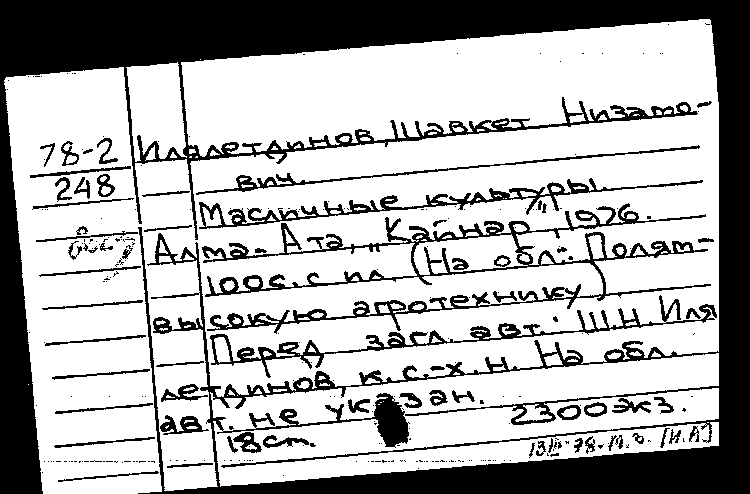 78-2 Илялетдинов, Шавкет Низамо-
248 вич.
Масличные культуры.
Алма-Ата, „Кайнар", 1976.
100с. с ил. (На обл.: Полям-
высокую агротехнику)
Перед загл. авт.: Ш.Н. Иля
летдинов, к.с.-х.н. На обл.
авт. не указан.
18 см. 2300 экз.